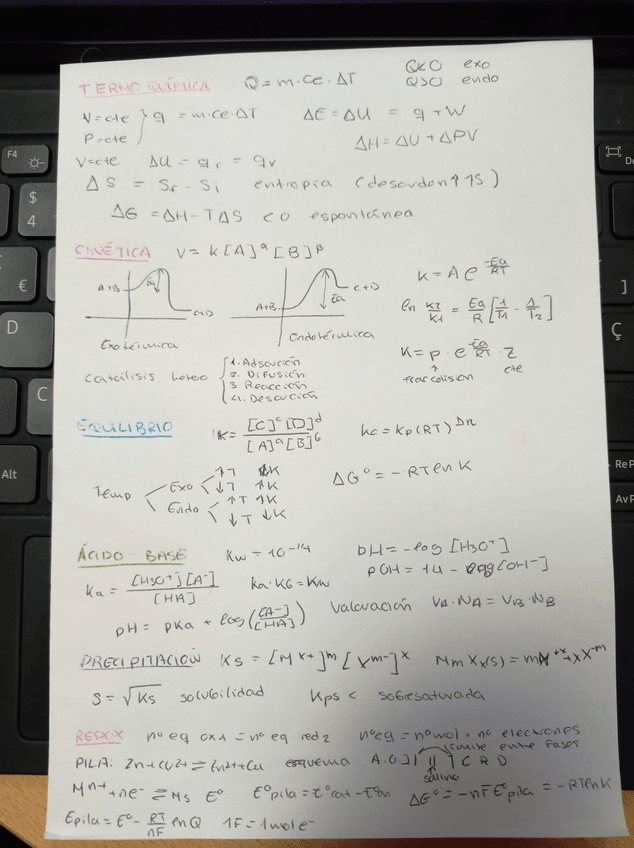 TERMOQUÍMICA Q = m·Ce·ΔT Q<0 exo
Q>0 endo
V=cte } q = m·ce·ΔT ΔE = ΔU = q + W
P=cte
ΔH = ΔU + ΔPV
V=cte ΔU = qr = qv
ΔS = Sf - Si entropía (desorden ↑ ↑S)
ΔG = ΔH - TΔS <0 espontánea
CINÉTICA V = k[A]^α [B]^β
K = A e^(-Ea/RT)
A+B Ea C+D A+B Ea C+D
ln k2/k1 = Ea/R [1/T1 - 1/T2]
Exotérmica Endotérmica
K = p · e^(-Ea/RT) · Z
frac colision cte
Catálisis hetero { 1. Adsorción
2. Difusión
3 Reacción
4. Desorción
EQUILIBRIO K = [C]^c [D]^d / [A]^a [B]^b Kc = Kp(RT)^Δn
Temp Exo ↑T ↓K
↓T ↑K
Endo ↑T ↑K
↓T ↓K
ΔG° = -RTlnK
ÁCIDO-BASE Kw = 10^-14 pH = -log [H3O+]
pOH = 14 - log[OH-]
Ka = [H3O+][A-] / [HA] Ka·Kb = Kw
pH = pKa + log([A-]/[HA]) Valoración VA·NA = VB·NB
PRECIPITACIÓN Ks = [M^x+]^m [X^m-]^x MmXx(s) = mM^+x + xX^-m
S = √Ks solubilidad Kps < sobresaturada
REDOX nº eq ox1 = nº eq red2 nºeq = nºmol · nº electrones
límite entre fases
PILA: Zn+Cu2+ ⇌ Zn2++Cu esquema A.O] || ] C R D
salino
M^n+ + ne- ⇌ Ms E° E°pila = E°cat - E°an ΔG° = -nFE°pila = -RTlnK
Epila = E° - RT/nF lnQ 1F = 1mol e-
F4
$
4
€
D
C
Alt
]
Ç